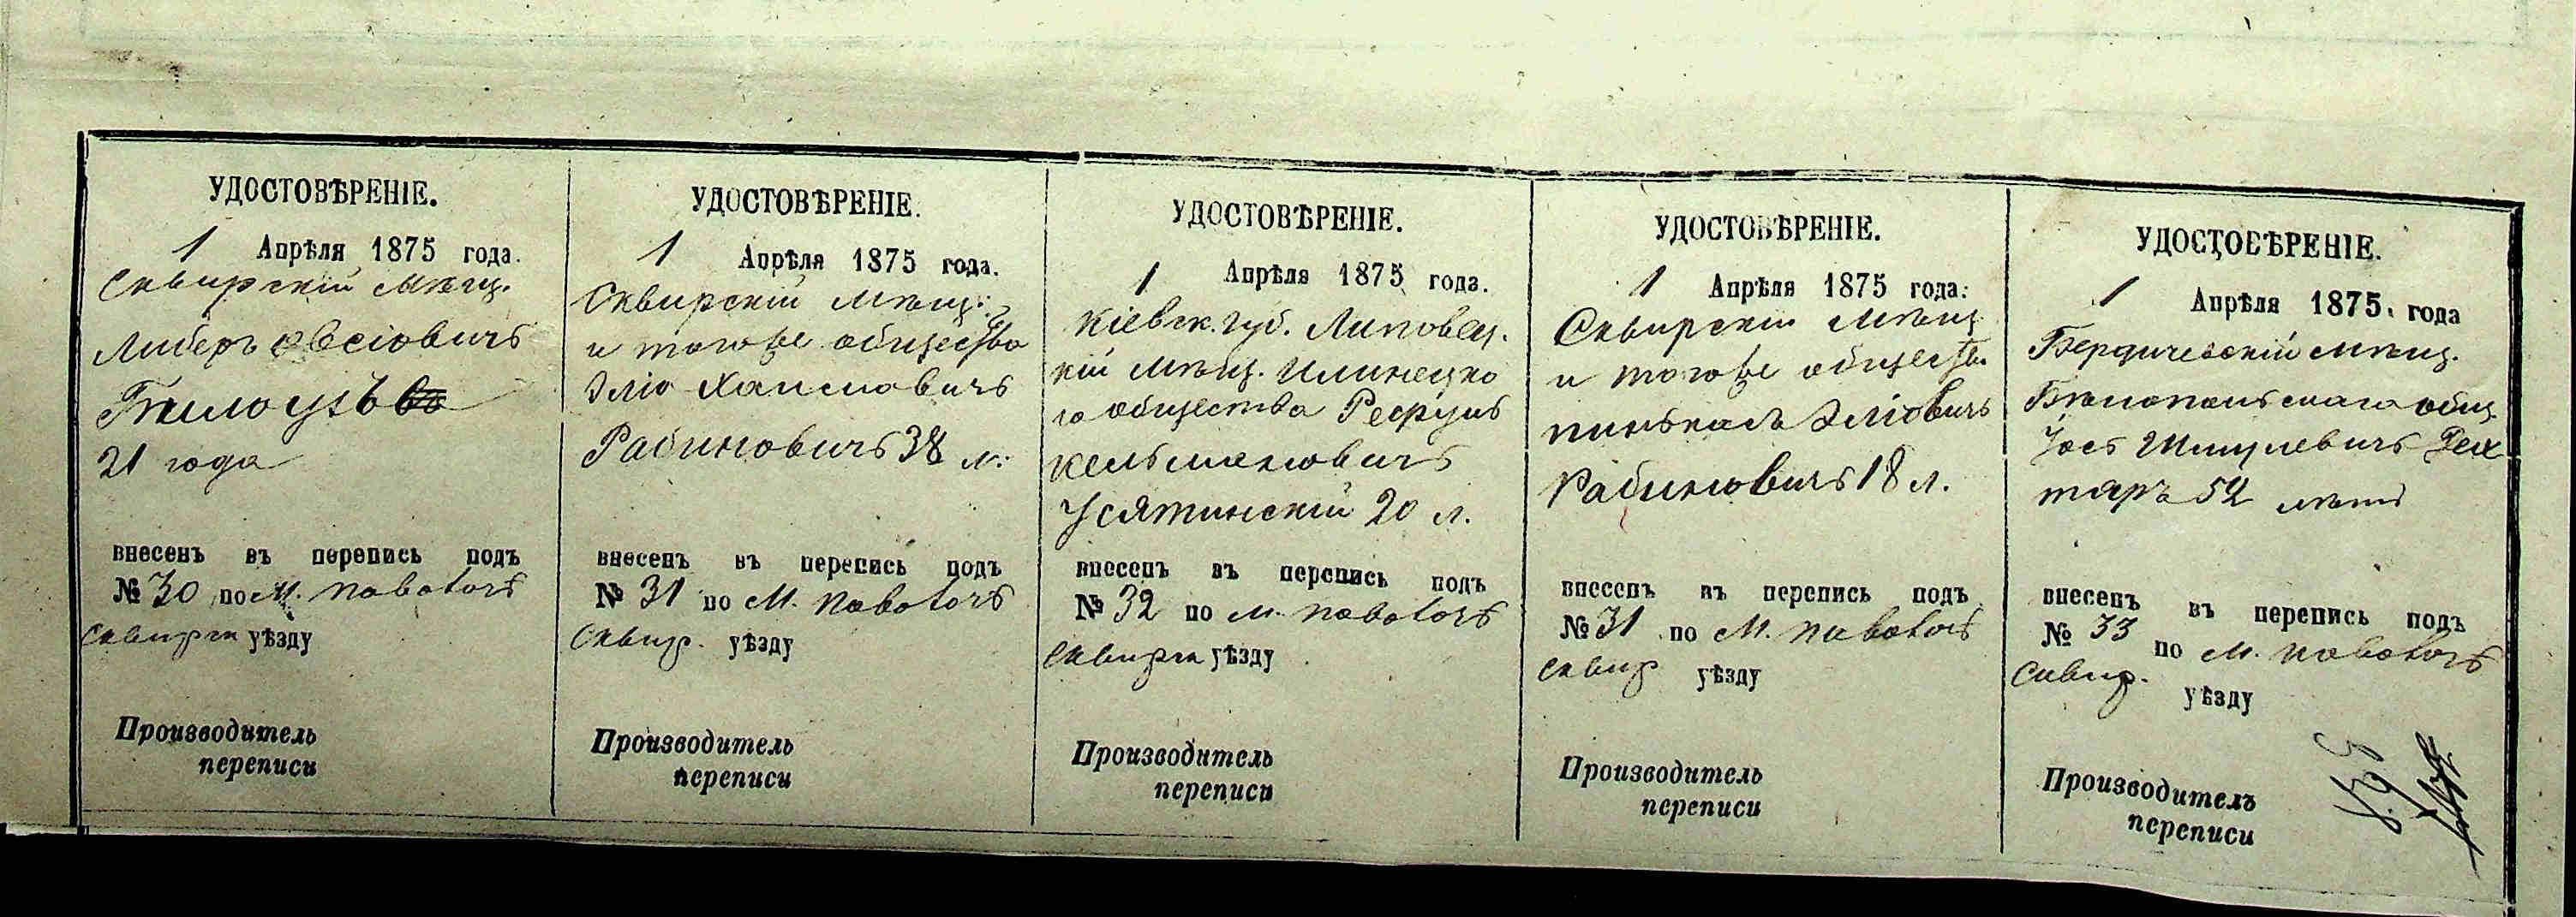 УДОСТОВѢРЕНІЕ.
1 Апрѣля 1875 года.
Сквирскій мѣщ.
Либеръ Овсіовичъ
21 года
внесенъ въ перепись подъ
№ 30 по м. Паволочѣ
Сквирск уѣзду
Производитель
переписи
УДОСТОВѢРЕНІЕ.
1 Апрѣля 1875 года.
Сквирскій мѣщ.
и тогоже общества
Эліо Хаимовичъ
Рабиновичъ 38 л.
внесенъ въ перепись подъ
№ 31 по м. Паволочѣ
Сквир. уѣзду
Производитель
переписи
УДОСТОВѢРЕНІЕ.
1 Апрѣля 1875 года.
Кіевск. губ. Липовец.
кій мѣщ. Илинецко
го общества Рефулъ
Кельмановичъ
Усятинскій 20 л.
внесенъ въ перепись подъ
№ 32 по м. Паволочѣ
Сквирск уѣзду
Производитель
переписи
УДОСТОВѢРЕНІЕ.
1 Апрѣля 1875 года.
Сквирскій мѣщ
и тогоже обществ.
Пинькасъ Эліовичъ
Рабиновичъ 18 л.
внесенъ въ перепись подъ
№ 31 по м. Паволочѣ
Сквир уѣзду
Производитель
переписи
УДОСТОВѢРЕНІЕ.
1 Апрѣля 1875. года
Бердичевскій мѣщ.
Бѣлопольскаго общ
Іось Шмулевичъ Рех
таръ 52 лѣтъ
внесенъ въ перепись подъ
№ 33 по м. Паволочѣ
Сквир. уѣзду
Производитель
переписи